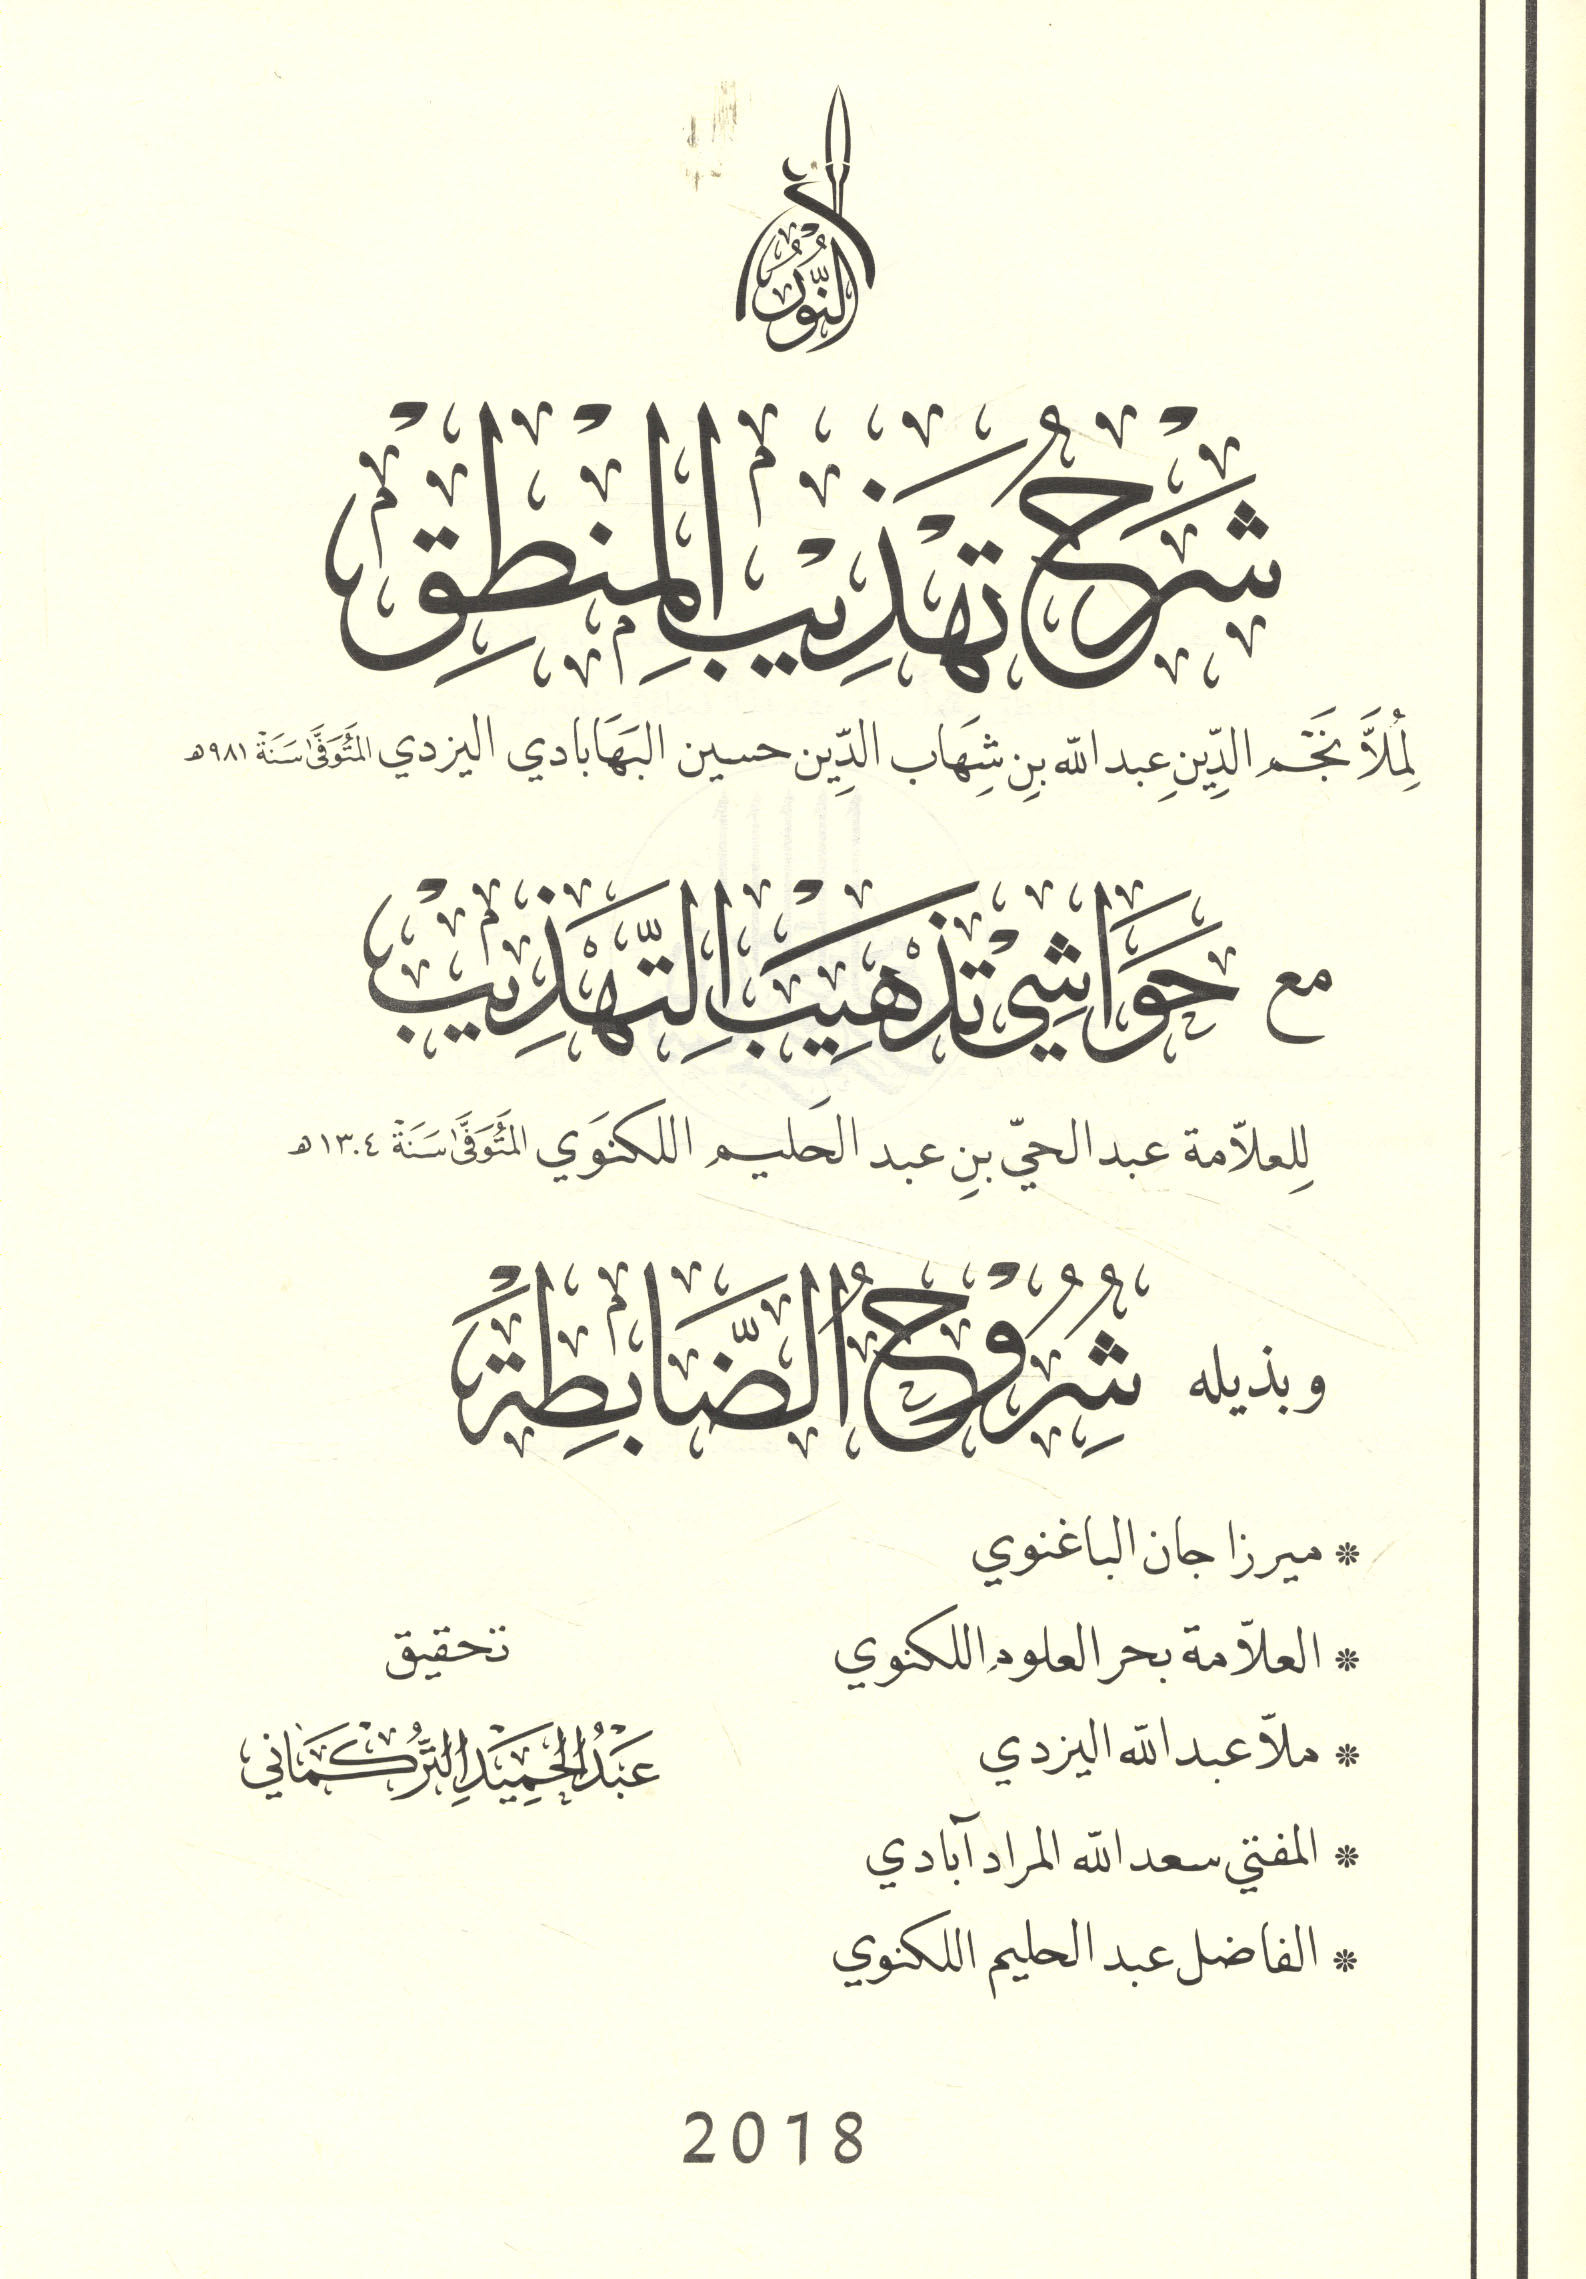 النُّور
شَرْحُ تَهْذِيبِ الْمِنْطِقِ
لِمُلاَّ نَجْمِ الدِّينِ عبد الله بنِ شِهَاب الدِّين حسين البَهَابادي اليزدي المُتَوَفَّىٰ سَنَةَ ٩٨١هـ
مع حَوَاشِي تَذْهِيبِ التَّهْذِيبِ
لِلعلاّمة عبد الحيّ بنِ عبد الحَليم اللكنَوَي المُتَوَفَّىٰ سَنَةَ ١٣٠٤هـ
وبذيله شُرُوحُ الضَّابِطَةِ
* ميرزا جان الباغنوي
* العلاّمة بحر العلوم اللكنوي
* ملاّ عبد الله اليزدي
* المفتي سعد الله المراد آبادي
* الفاضل عبد الحليم اللكنوي
تحقيق
عَبْدُ الْحَمِيدِ التُّرْكْمَاني
2018